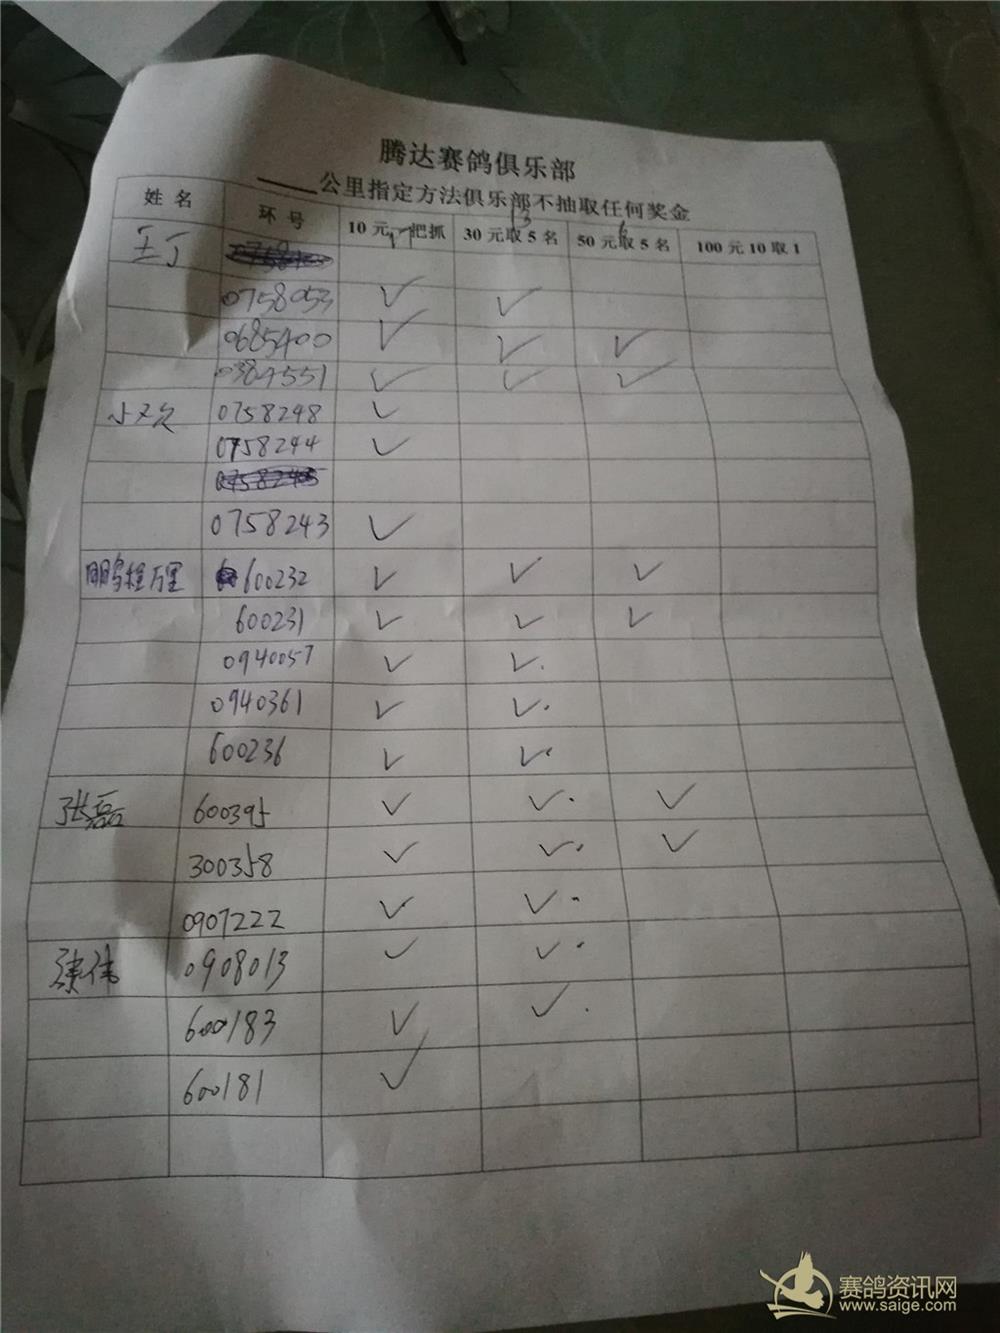 腾达赛鸽俱乐部
____公里指定方法俱乐部不抽取任何奖金
姓 名 环 号 10元一把抓 30元取5名 50元取5名 100元10取1
王丁
0758053 ✓ ✓
0685400 ✓ ✓ ✓
0384551 ✓ ✓ ✓
0758248 ✓
0758244 ✓
0758243 ✓
鹏程万里 600232 ✓ ✓ ✓
600231 ✓ ✓ ✓
0940057 ✓ ✓
0940361 ✓ ✓
600236 ✓ ✓
张磊 600395 ✓ ✓ ✓
300358 ✓ ✓ ✓
0907222 ✓ ✓
0908013 ✓ ✓
600183 ✓ ✓
600181 ✓
赛鸽资讯网
www.saige.com